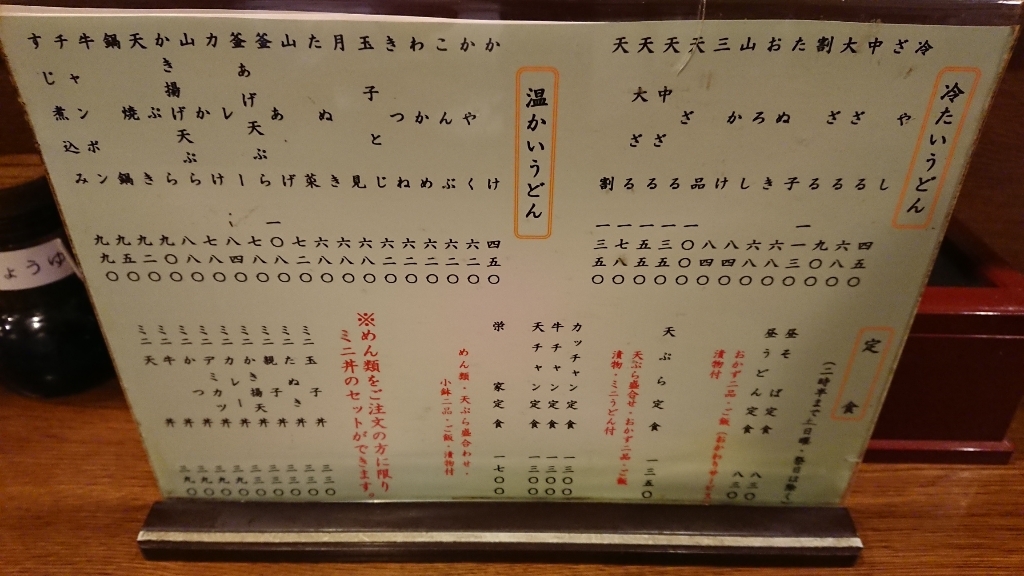 冷たいうどん
冷やし 四五〇
ざる 六八〇
中ざる 九〇〇
大ざる 一一三〇
割子 六八〇
たぬき
おろし 八四〇
山かけ 八四〇
三品 一〇〇〇
天ざる 一三三〇
天中ざる 一五五〇
天大ざる 一七八〇
天割 一三五〇
温かいうどん
かけ 四五〇
かやく 六二〇
こんぶ 六二〇
わかめ 六二〇
きつね 六二〇
玉子とじ 六二〇
月見 六八〇
たぬき 六八〇
山菜 六八〇
釜あげ 七二〇
釜あげ天ぷら 一〇八〇
カレー 七八〇
山かけ 八四〇
かき揚げ天ぷら 七八〇
天ぷら 八八〇
鍋焼き 九〇〇
牛鍋 九二〇
チャンポン 九五〇
すじ煮込み 九九〇
定食
(二時半まで土日曜・祭日は除く)
昼そば定食 八三〇
昼うどん定食 八三〇
おかず二品・ご飯(おかわりサービス)
漬物付
天ぷら定食 一三五〇
天ぷら盛合せ・おかず二品・ご飯
漬物・ミニうどん付
カッチャン定食 一三〇〇
牛チャン定食 一三〇〇
天チャン定食 一三〇〇
栄家定食 一七〇〇
めん類・天ぷら盛合わせ・
小鉢二品・ご飯・漬物付
※めん類をご注文の方に限り
ミニ丼のセットができます。
ミニ玉子丼 三三〇
ミニたぬき丼 三三〇
ミニ親子丼 三三〇
ミニかき揚天丼 三三〇
ミニカレー丼 三九〇
ミニデミカツ丼 三九〇
ミニかつ丼 三九〇
ミニ牛丼 三九〇
ミニ天丼 三九〇
ょうゆ